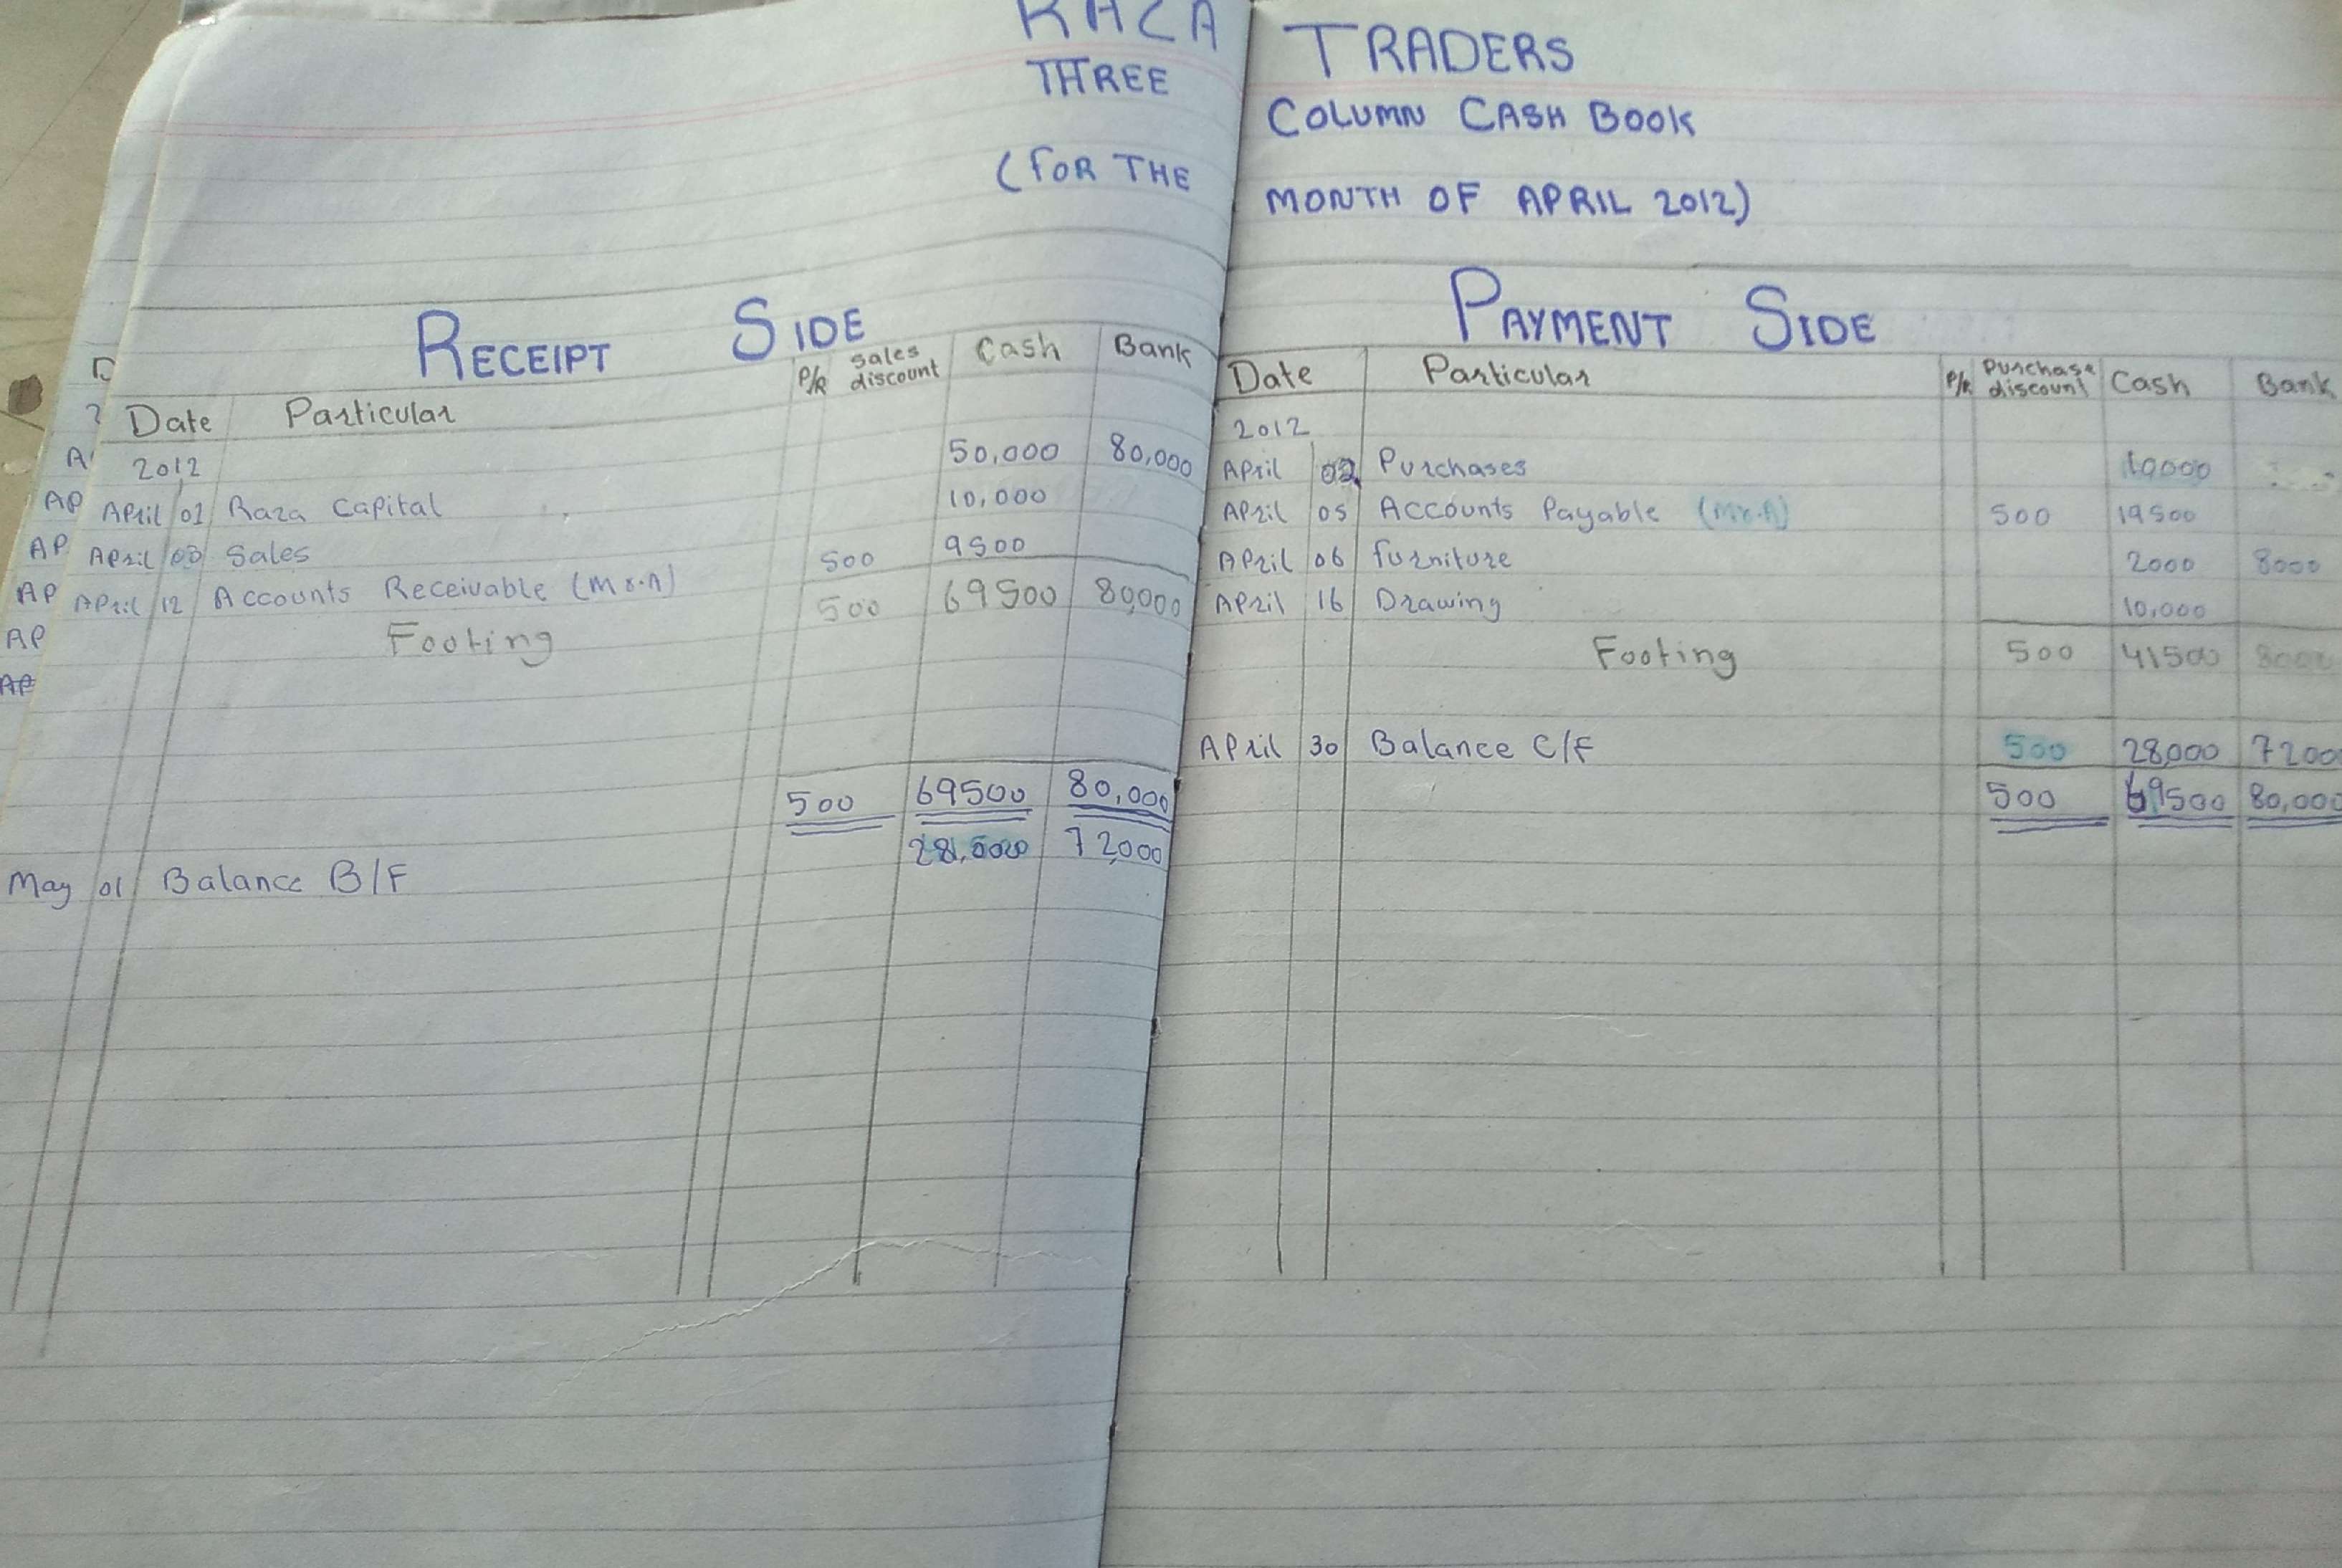 RAZA TRADERS
THREE COLUMN CASH BOOK
(FOR THE MONTH OF APRIL 2012)
RECEIPT SIDE
Date Particular P/R Sales discount Cash Bank
2012
April 01 Raza Capital 50,000 80,000
April 03 Sales 10,000
April 12 Accounts Receivable (Mr.A) 500 9500
Footing 500 69500 80,000
500 69500 80,000
May 01 Balance B/F 72,000
PAYMENT SIDE
Date Particular P/R Purchase discount Cash Bank
2012
April 02 Purchases 10000
April 05 Accounts Payable (Mr.A) 500 19500
April 06 furniture 2000 8000
April 16 Drawing 10,000
Footing 500 41500 8000
April 30 Balance C/F 500 28,000 7200
500 69500 80,000
D
2
A
AP
AP
AP
AP
AP